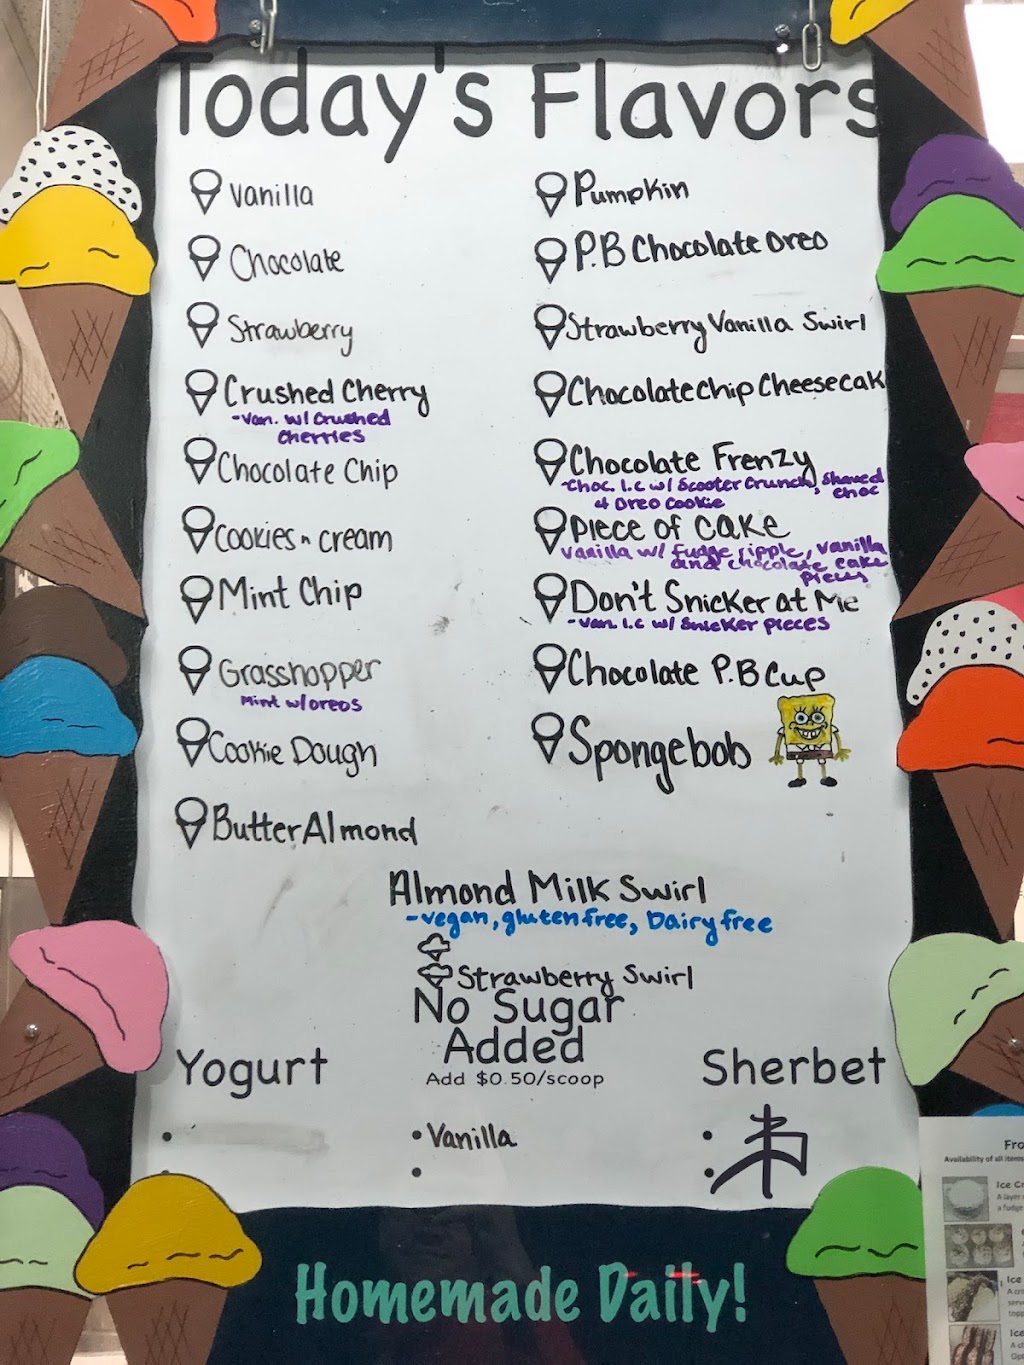 Today's Flavors
Vanilla
Chocolate
Strawberry
Crushed Cherry
-Van. w/ Crushed
Cherries
Chocolate Chip
Cookies n cream
Mint Chip
Grasshopper
Mint w/oreos
Cookie Dough
Butter Almond
Pumpkin
P.B Chocolate Oreo
Strawberry Vanilla Swirl
Chocolate Chip Cheesecak
Chocolate Frenzy
-Choc. I.C w/ Scooter Crunch, Shaved
choc
+ Oreo Cookie
Piece of Cake
Vanilla w/ fudge ripple, vanilla
and chocolate cake
pieces
Don't Snicker at Me
-Van. I.C w/ Snicker pieces
Chocolate P.B Cup
Spongebob
Almond Milk Swirl
-vegan, gluten free, Dairy free
Strawberry Swirl
No Sugar
Added
Add $0.50/scoop
• Vanilla
•
Yogurt
•
Sherbet
•
•
Homemade Daily!
Fro
Availability of all items
Ice Cr
A layer
a fudge
Ice
A cr
serve
topp
Ice
A cl
Opt